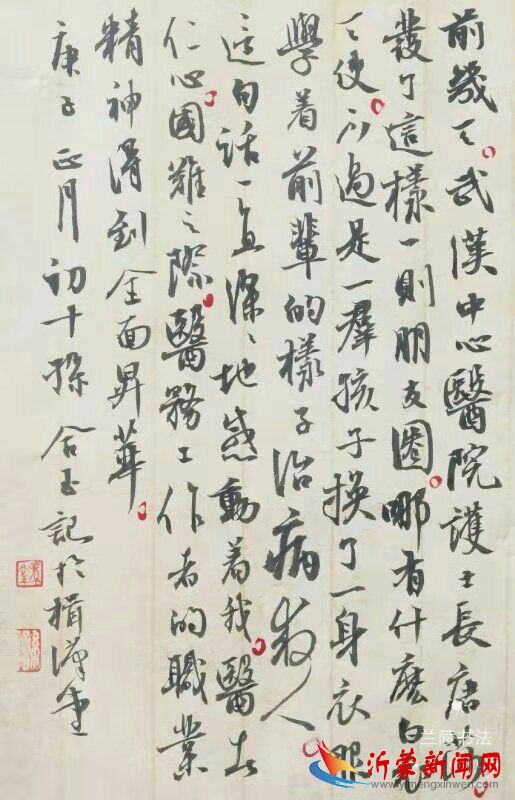 前幾天武漢中心醫院護士長唐
發了這樣一則朋友圈哪有什麽白衣
天使不過是一羣孩子換了一身衣服
學着前輩的樣子治病救人
這句話一直深深地感動着我醫者
仁心國難之際醫務工作者的職業
精神得到全面昇華
庚子正月初十孫合玉記於楫漢堂
兰陵书法
沂蒙新闻网
www.yimengxinwen.com